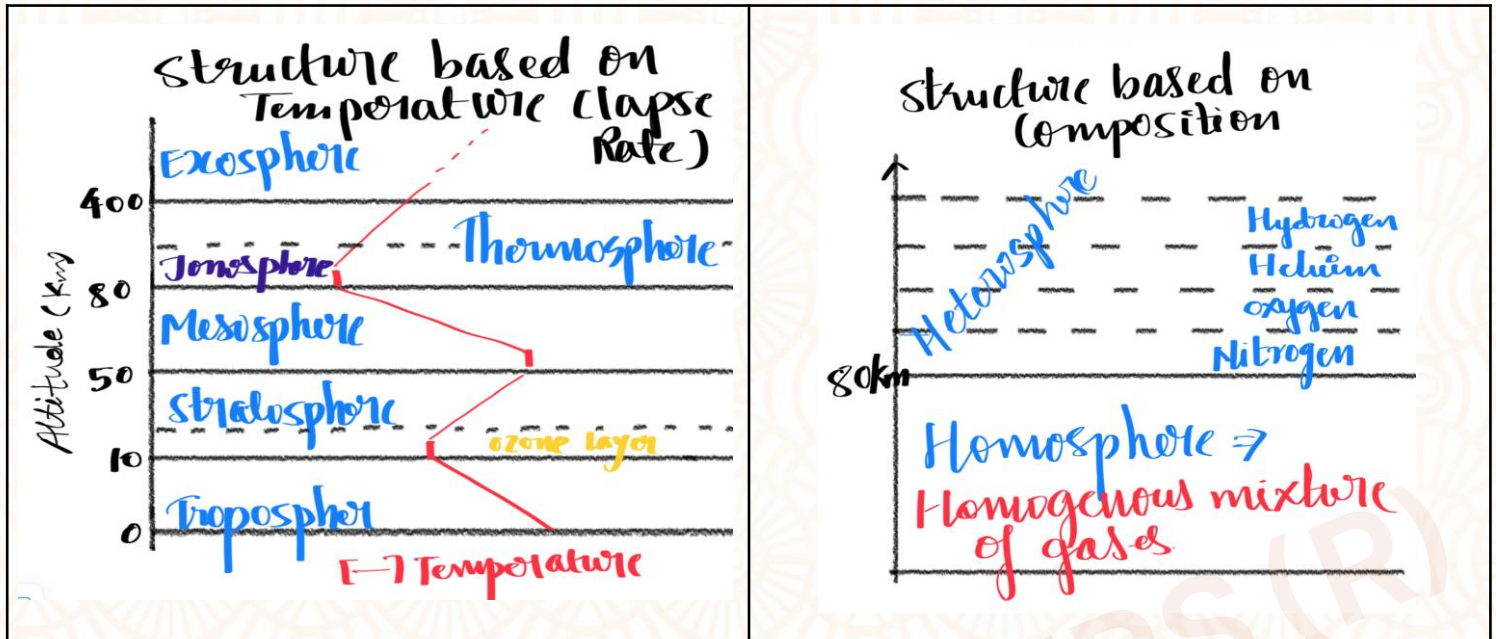 Structure based on
Temperature (lapse
Rate)
Exosphere
400
Thermosphere
Ionosphere
80
Mesosphere
50
Stratosphere
ozone layer
10
Tropospher
0
Altitude (Km)
[—] Temperature
Structure based on
Composition
Heterosphere
Hydrogen
Helium
oxygen
Nitrogen
80km
Homosphere ⇒
Homogenous mixture
of gases
PS (R)